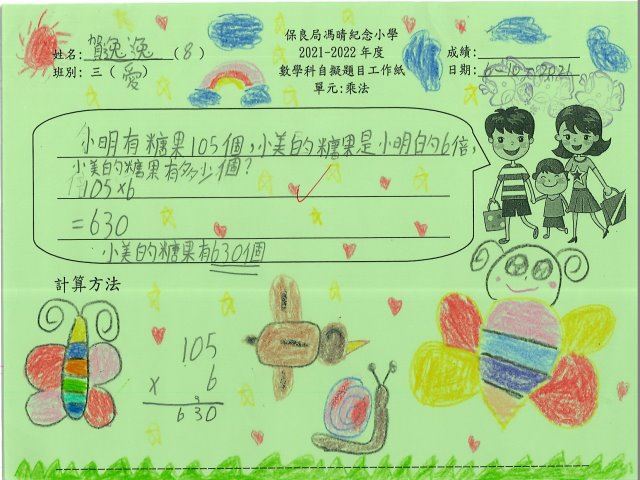 保良局馮晴紀念小學
姓名: (8) 2021-2022年度 成績:
班別: 三 (愛) 數學科自擬題目工作紙 日期: 6-10-2021
單元:乘法
小明有糖果105個,小美的糖果是小明的6倍,
小美的糖果有多少個?
105×6
=630
小美的糖果有630個
計算方法
105
× 6
3
630